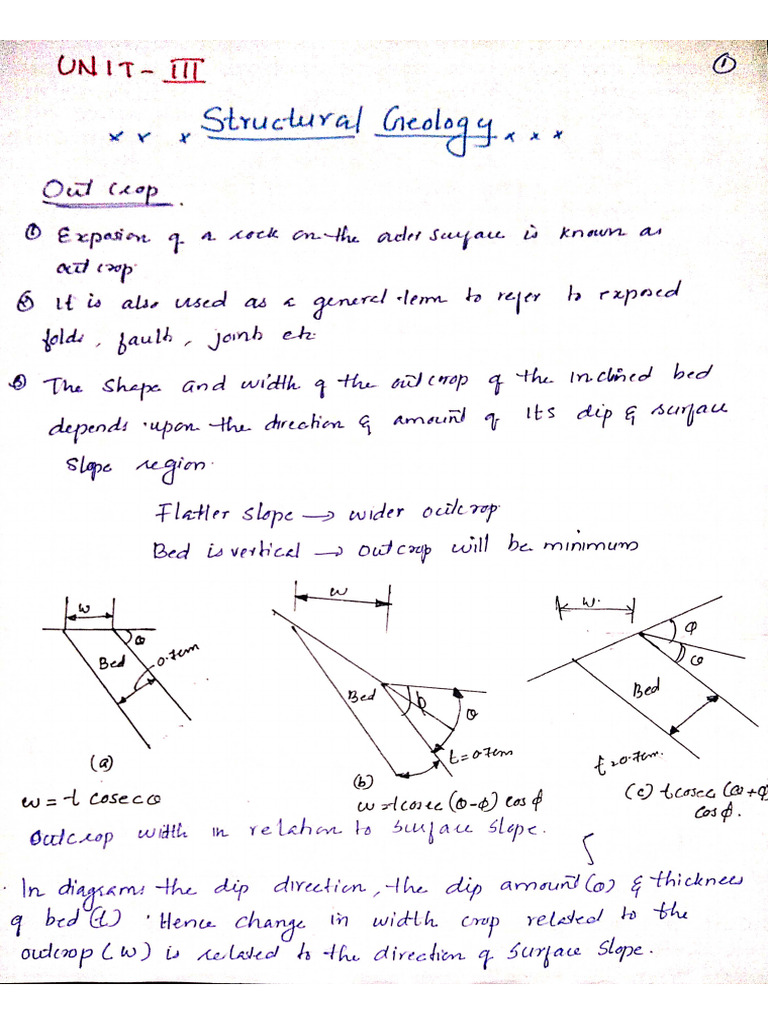 UNIT - III
1
x x x Structural Geology x x x
Out crop.
① Exposion of a rock on the outer surface is known as
out crop.
② It is also used as a general term to refer to exposed
folds, faults, joints etc.
③ The shape and width of the outcrop of the inclined bed
depends upon the direction & amount of its dip & surface
slope region.
Flatter slope → wider outcrop.
Bed is vertical → outcrop will be minimum
w
θ
Bed
0.7cm
(a)
w = t cosec θ
w
Bed
ϕ
θ
t = 0.7cm
(b)
w = t cosec (θ-ϕ) cos ϕ
w
ϕ
θ
Bed
t = 0.7cm.
(c) t cosec (θ+ϕ)
cos ϕ.
Outcrop width in relation to surface slope.
In diagrams the dip direction, the dip amount (θ) & thickness
of bed (t). Hence change in width crop related to the
outcrop (w) is related to the direction of surface slope.